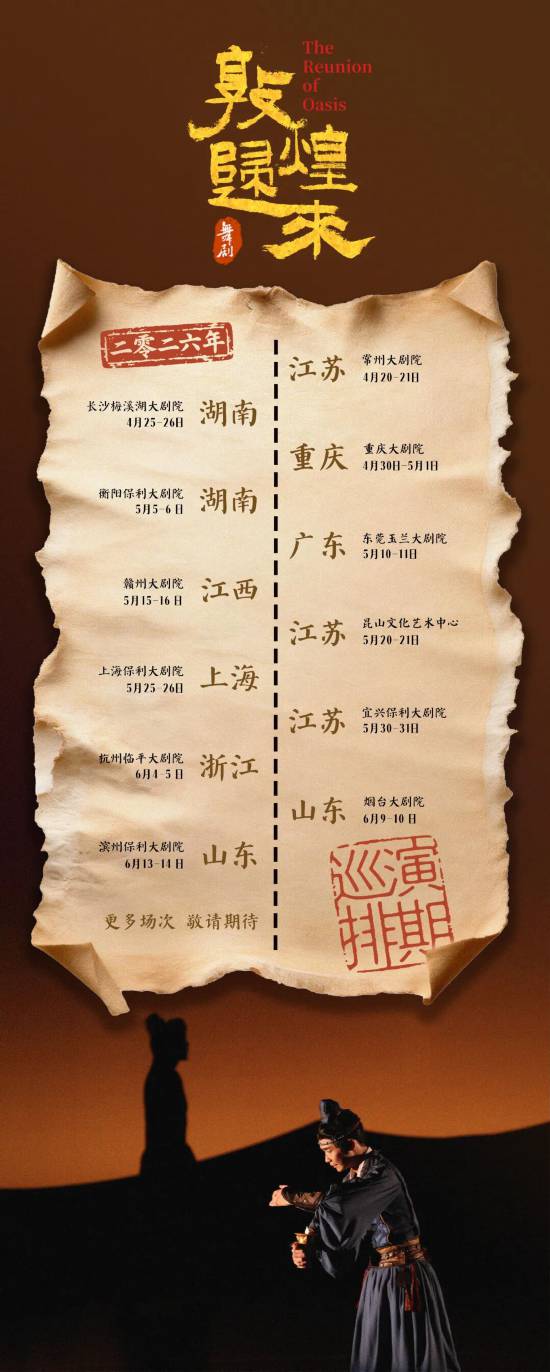 The
Reunion
of
Oasis
敦煌
歸來
舞剧
二零二六年
江苏
常州大剧院
4月20-21日
长沙梅溪湖大剧院
4月25-26日
湖南
重庆
重庆大剧院
4月30日-5月1日
衡阳保利大剧院
5月5-6 日
湖南
广东
东莞玉兰大剧院
5月10-11日
赣州大剧院
5月15-16 日
江西
江苏
昆山文化艺术中心
5月20-21日
上海保利大剧院
5月25-26日
上海
江苏
宜兴保利大剧院
5月30-31日
杭州临平大剧院
6月4-5 日
浙江
山东
烟台大剧院
6月9-10 日
滨州保利大剧院
6月13-14 日
山东
更多场次 敬请期待
巡演
排期